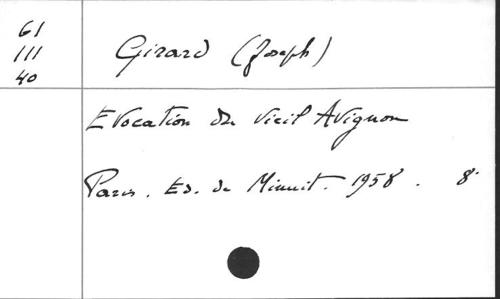 61
111
40
Girard (Joseph)
Evocation du Vieil Avignon
Paris. Ed. de Minuit. 1958. 8°